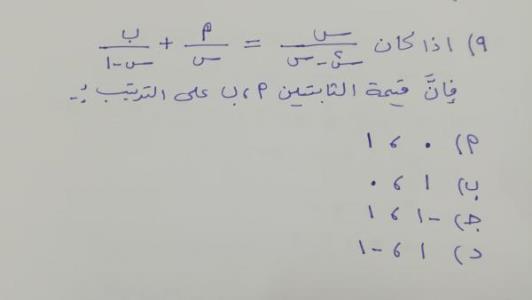 ٩) اذا كان س / (س² - س) = م / س + ب / (س - ١)
فإنَّ قيمة الثابتين م ، ب على الترتيب :-
م) ٠ ، ١
ب) ١ ، ٠
ج) -١ ، ١
د) ١ ، -١